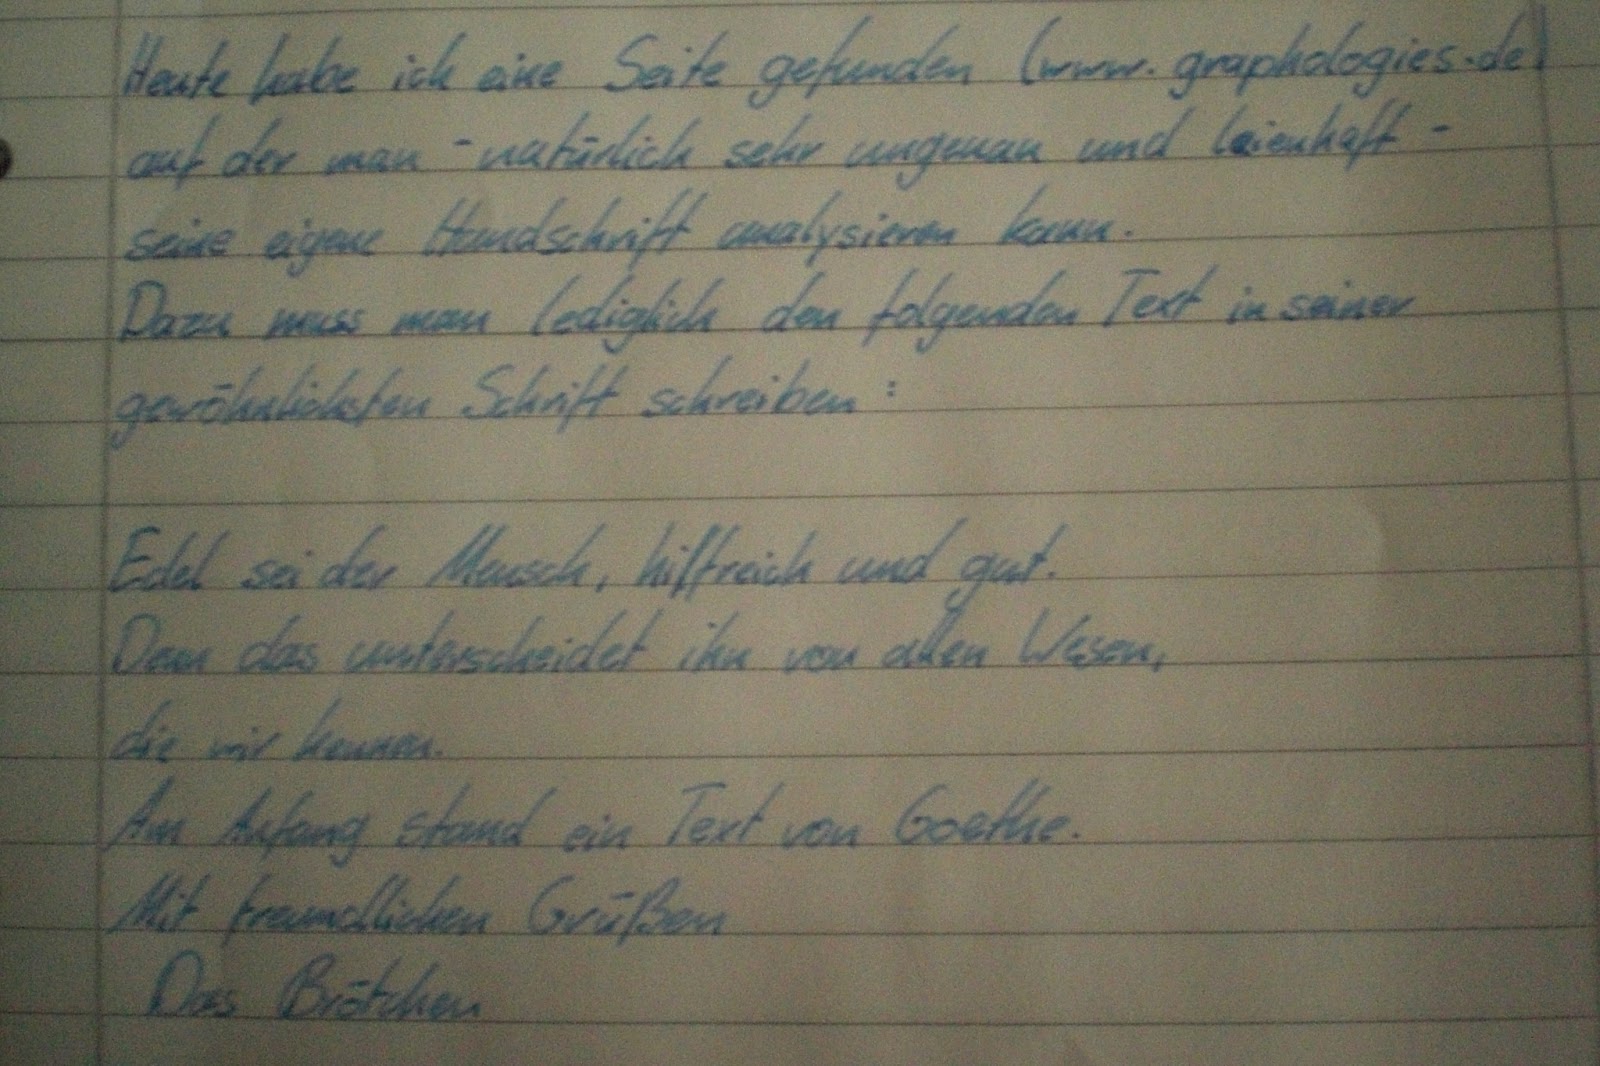 Heute habe ich eine Seite gefunden (www.graphologies.de)
auf der man - natürlich sehr ungenau und laienhaft -
seine eigene Handschrift analysieren kann.
Dazu muss man lediglich den folgenden Text in seiner
gewöhnlichsten Schrift schreiben:
Edel sei der Mensch, hilfreich und gut.
Denn das unterscheidet ihn von allen Wesen,
die wir kennen.
Am Anfang stand ein Text von Goethe.
Mit freundlichen Grüßen
Das Brötchen